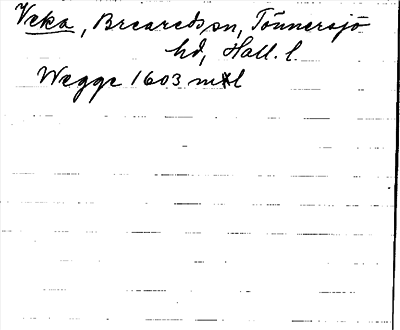 Veka, Breareds sn, Tönnersjö
hd, Hall. l.
Wegge 1603 mtl